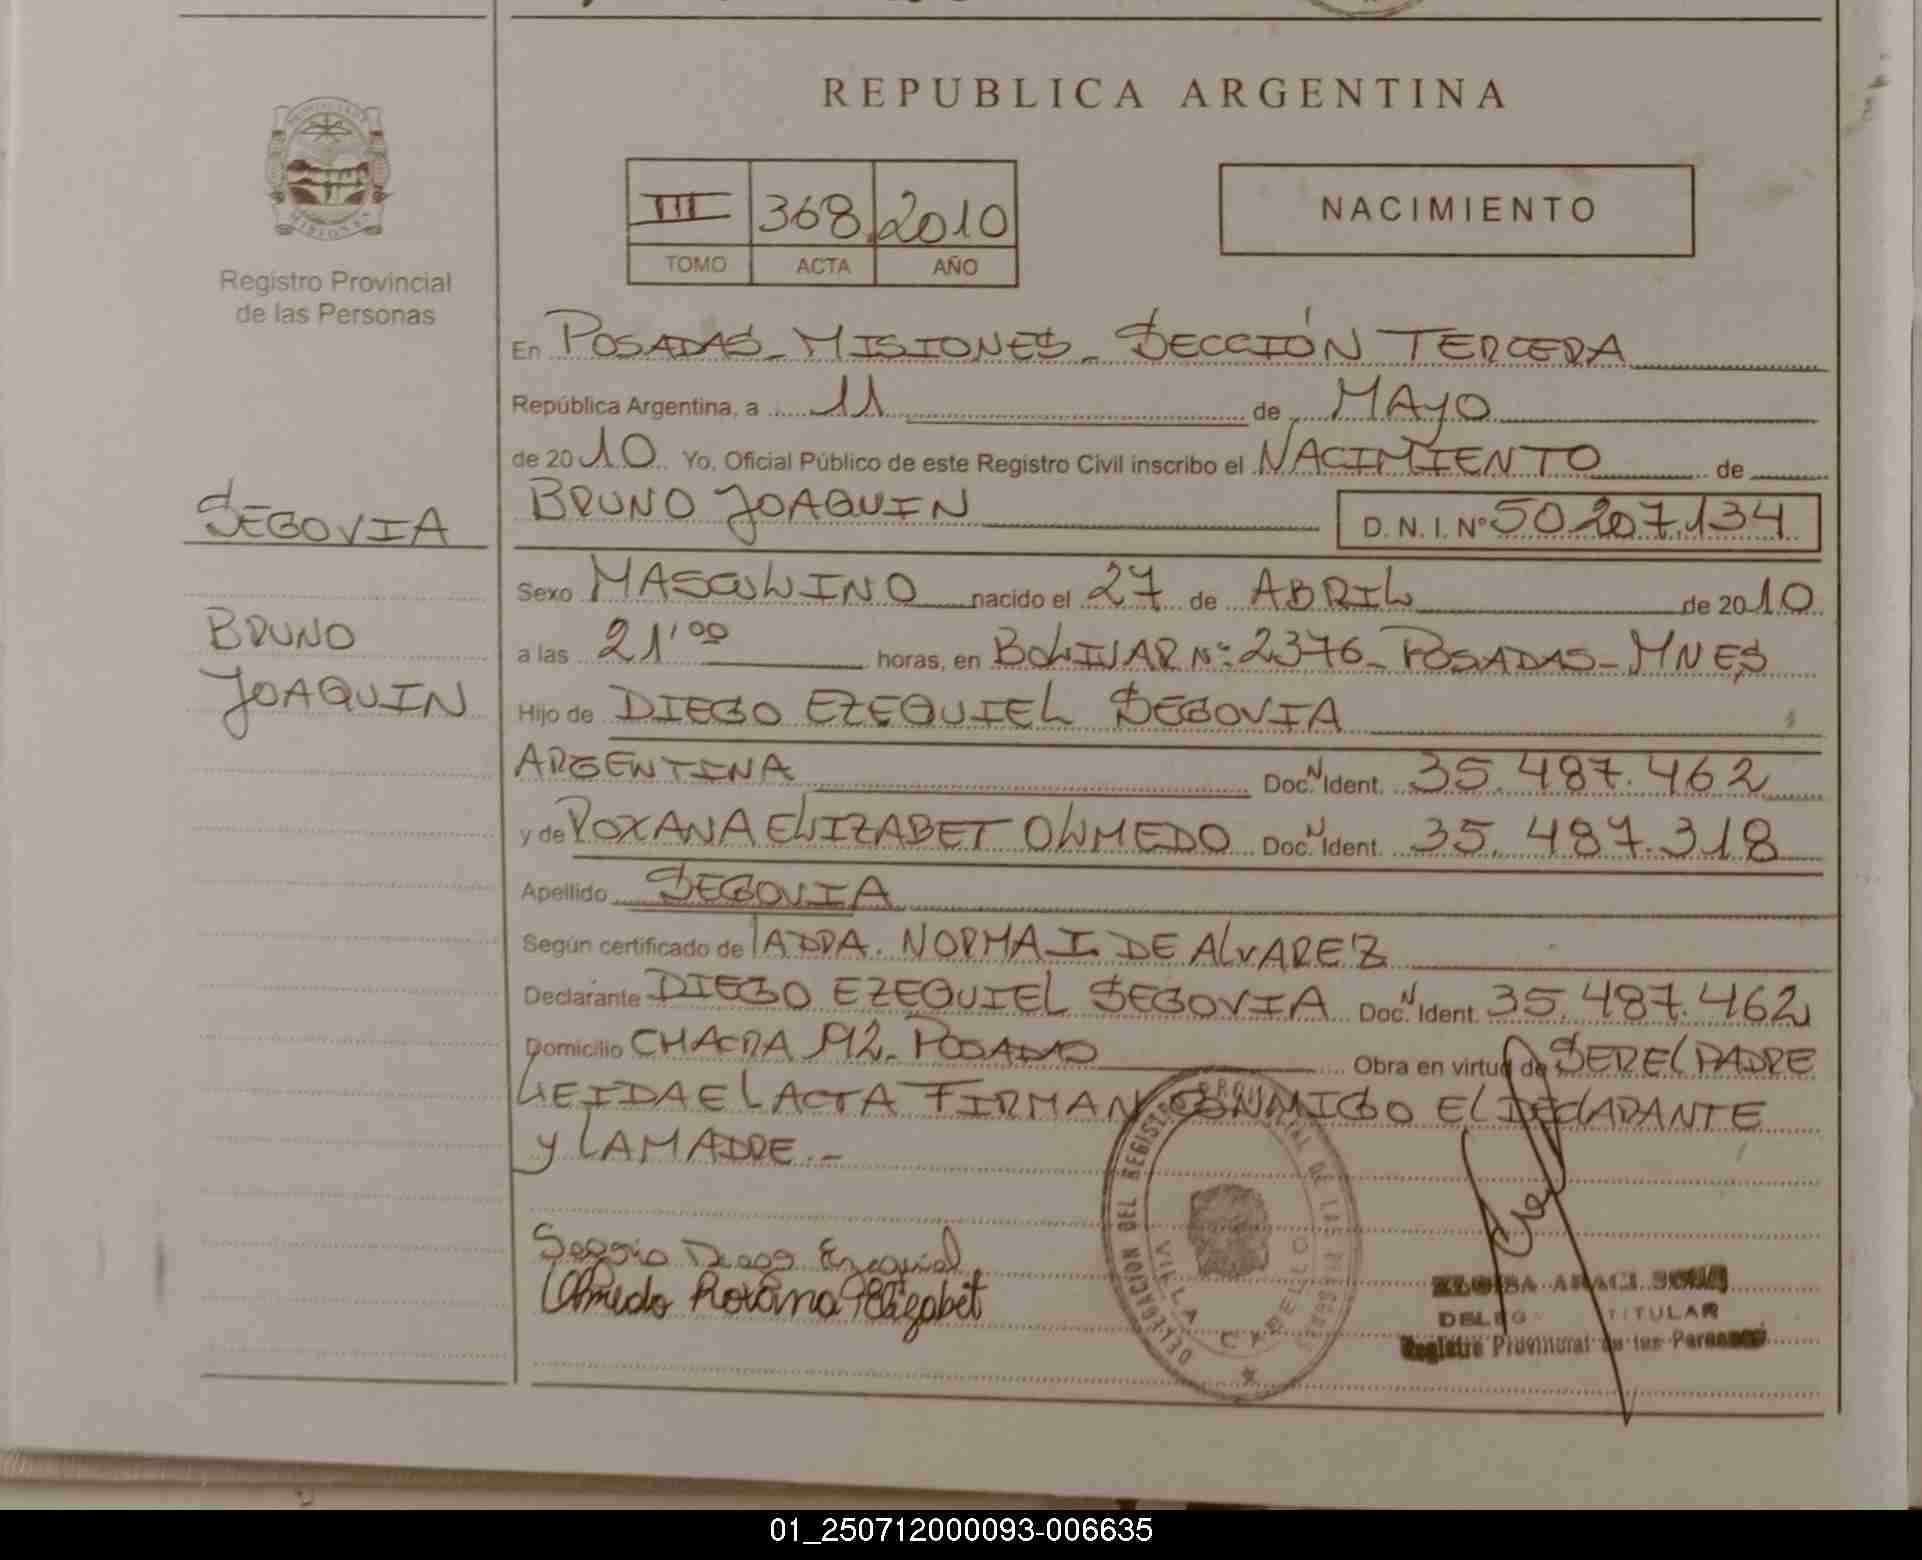 REPUBLICA ARGENTINA
III 368 2010
TOMO ACTA AÑO
NACIMIENTO
MISIONES
Registro Provincial
de las Personas
SEGOVIA
BRUNO
JOAQUIN
En POSADAS - MISIONES - SECCIÓN TERCERA
República Argentina, a 11 de MAYO
de 2010 Yo, Oficial Público de este Registro Civil inscribo el NACIMIENTO de
BRUNO JOAQUIN D. N. I. Nº 50.207.134
Sexo MASCULINO nacido el 27 de ABRIL de 2010
a las 21'00 horas, en BOLIVAR Nº: 2376 - POSADAS - MNES
Hijo de DIEGO EZEQUIEL SEGOVIA
ARGENTINA Doc. N Ident. 35.487.462
y de ROXANA ELIZABET OLMEDO Doc. N Ident. 35.487.318
Apellido SEGOVIA
Según certificado de LA DRA. NORMA I. DE ALVAREZ
Declarante DIEGO EZEQUIEL SEGOVIA Doc. N Ident. 35.487.462
Domicilio CHACRA 192 - POSADAS Obra en virtud de SER EL PADRE
LEIDA EL ACTA FIRMAN CONMIGO EL DECLARANTE
y LA MADRE. -
Ezequiel
Olmedo Roxana Elizabet
DELEGACION DEL REGISTRO PROVINCIAL DE LAS PERSONAS
VILLA CABELLO
ARACI
TITULAR
Registro Provincial de las Personas
01_250712000093-006635